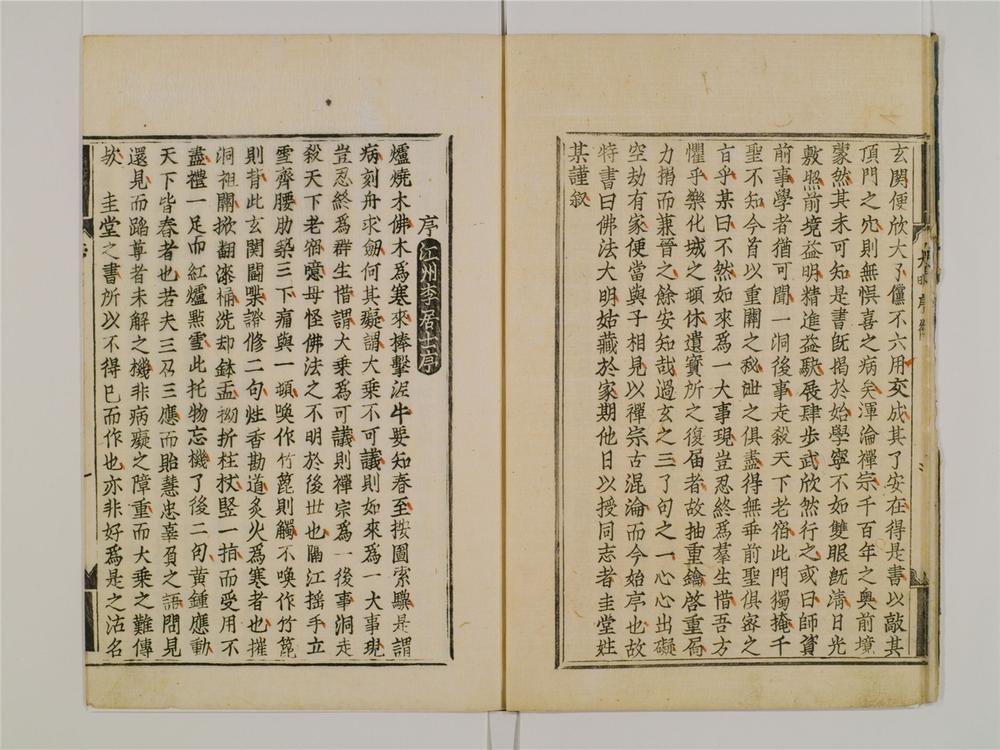 玄関便欣大了儻不六用交成其了安在得是書以敲其
頂門之穴則無惧喜之病矣渾淪禪宗千百年之奥前境
蒙然其未可知是書既揭於始學寧不如雙眼既淸日光
敷照前境益明精進益駃展肆步武欣然行之或曰師資
前事學者猶可聞一洞後事走殺天下老宿此門獨掩千
聖不知今首以重關之秘泄之俱盡得無垂前聖俱宻之
㫖乎某曰不然如來爲一大事現豈忍終爲羣生惜吾方
懼乎樂化城之頓休遺寳所之復届者故抽重鑰啓重扄
力捐而兼晉之餘安知哉過玄之三了句之一心心出礙
空劫有家便當與子相見以禪宗古混淪而今始亭也故
特書曰佛法大明姑藏於家期他日以授同志者圭堂姓
某謹叙
大明序
序
江州李居士序
爐燒木佛木爲寒來捧擊泥牛要知春至按圖索驥是謂
病刻舟求劔何其癡謂大乗不可議則如來爲一大事現
豈忍終爲群生惜謂大乗爲可議則禪宗爲一後事洞走
殺天下老宿噫毋怪佛法之不明於後世也關江揺手立
雪齊腰肋築三下痛與一頓喚作竹篦則觸不喚作竹篦
則背此玄関鬪㗖證修二句炷香勘道炙火爲寒者也摧
洞祖關掀翻漆桶洗却鉢盂拗折柱杖竪一指而受用不
盡禮一足而紅爐㸃雪此托物忘機了後二句黄鍾應動
天下皆春者也若夫三忍三應而貽慧忠辜負之語問見
還見而蹈尊者未解之機非病癡之障重而大乗之難傳
欤 圭堂之書所以不得已而作也亦非好爲是之沽名
一